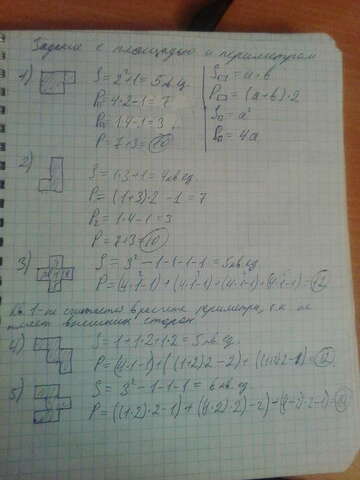 Задание с площадью и периметром
1) S = 2²+1 = 5 кв. ед.
P = 4·2-1 = 7
P = 1·4-1 = 3
P = 7+3 = 10
S = a·b
P = (a+b)·2
S = a²
P = 4a
2) S = 1·3+1 = 4 кв. ед.
P = (1+3)·2 - 1 = 7
P₂ = 1·4-1 = 3
P = 7+3 = 10
3) S = 3² - 1-1-1-1 = 5 кв. ед.
P = (4·1-1) + (4·1-1) + (4·1-1) + (4·1-1) = 12
Кв. 1 - не считается в расчете периметра, т.к. не
имеет внешних сторон.
4) S = 1+1·2+1·2 = 5 кв. ед.
P = (4·1-1) + ((1+2)·2-2) + = 12
5) S = 3² -1-1-1 = 6 кв. ед.
P =